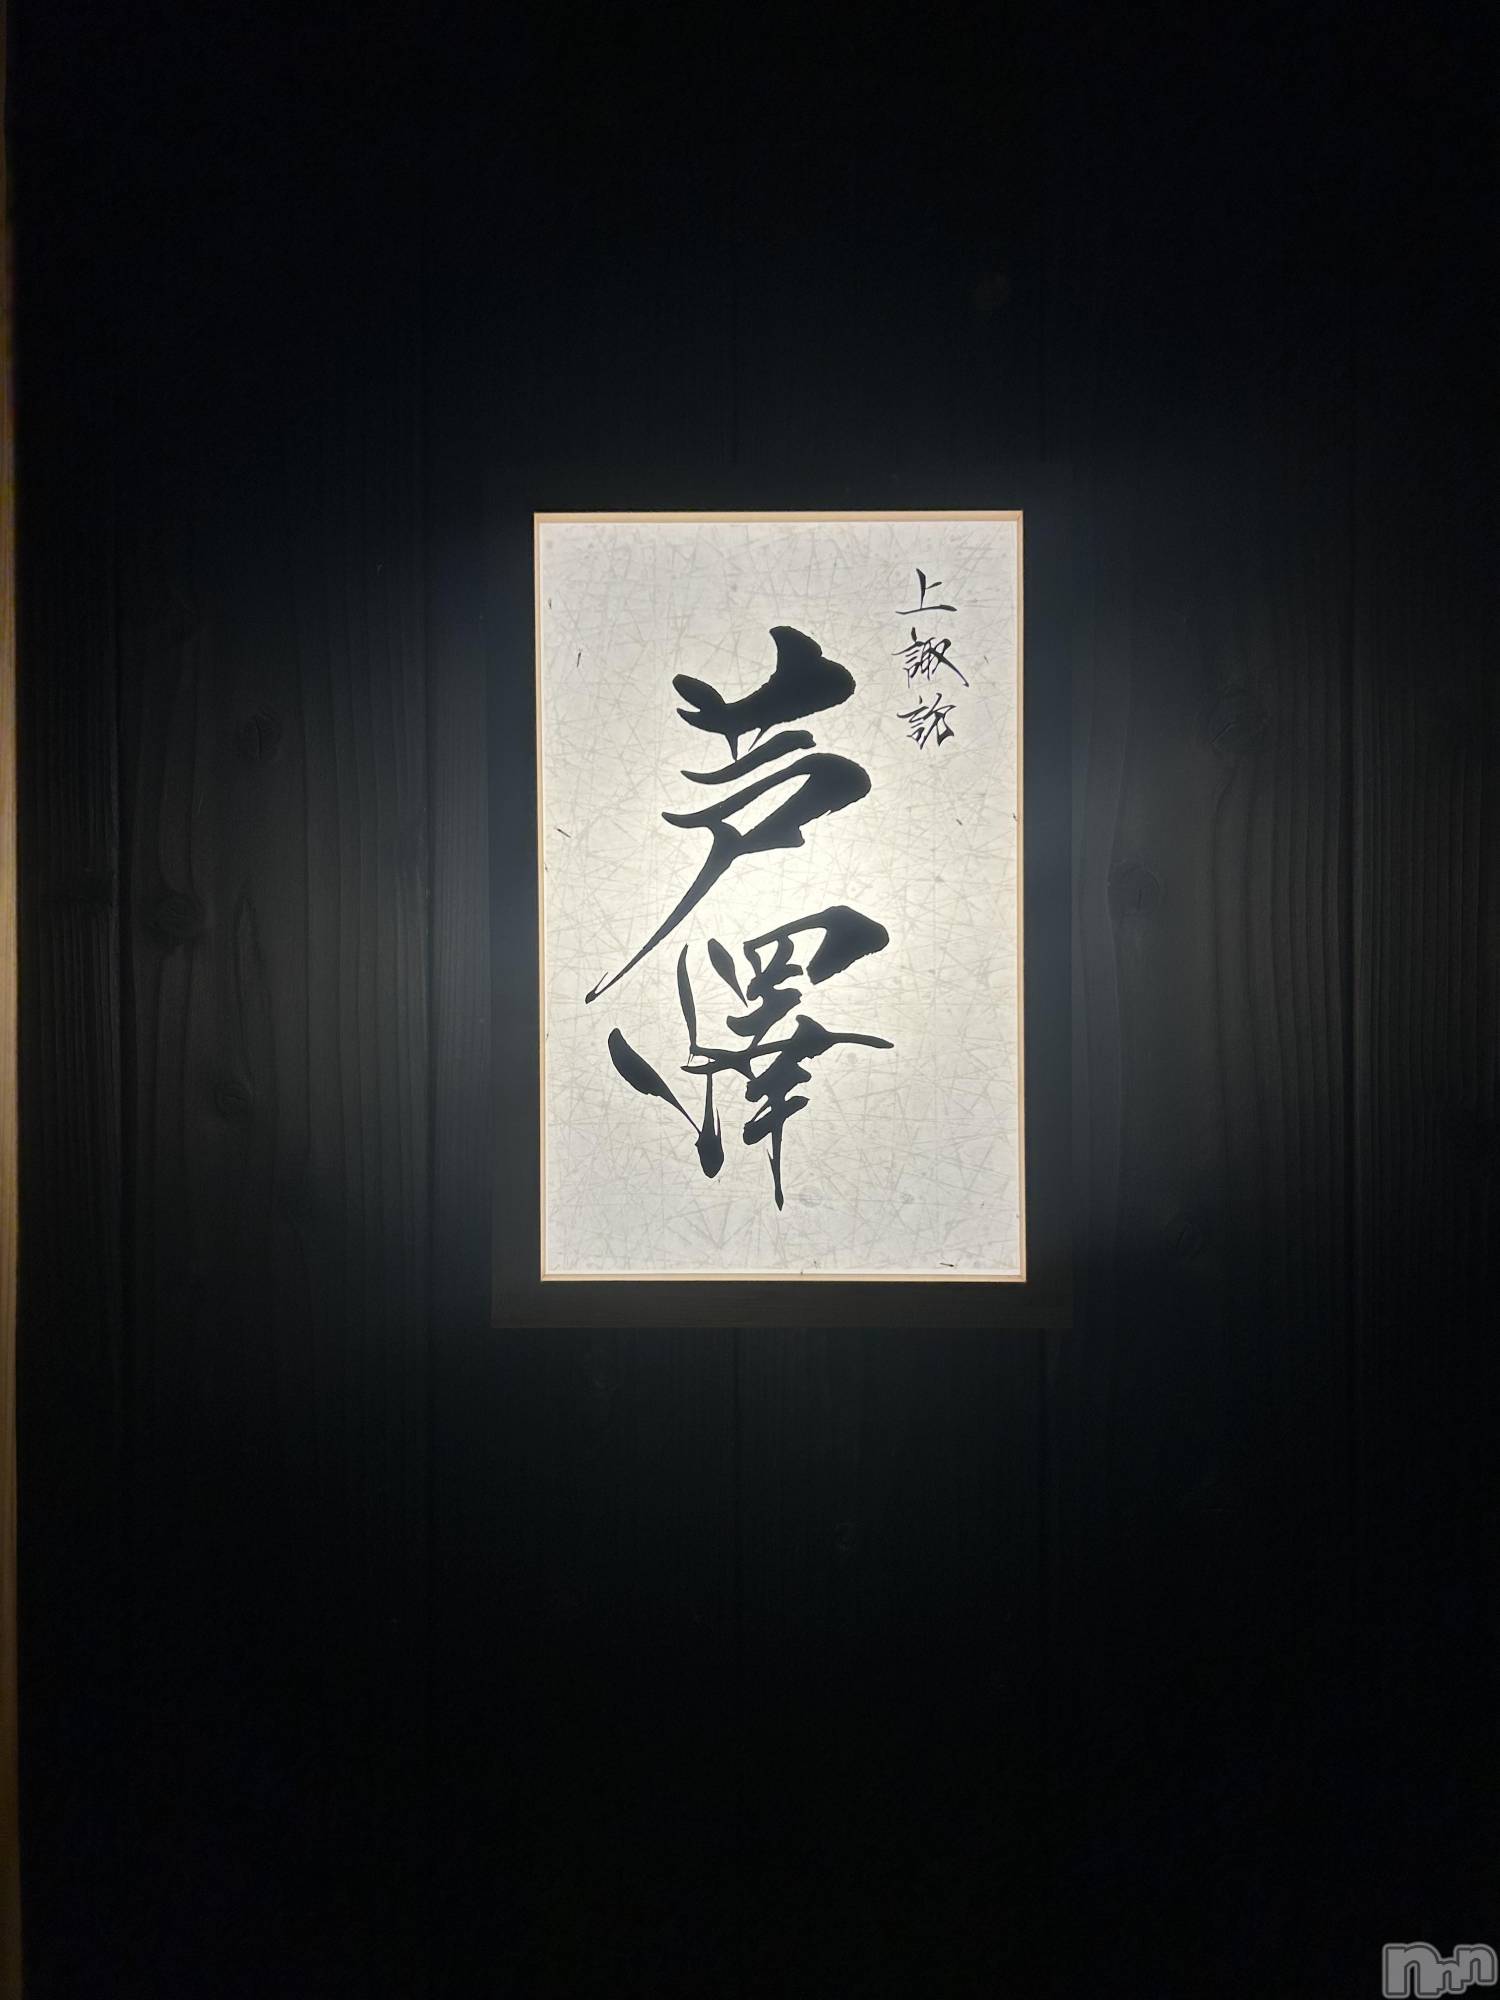 上諏訪
芦澤
nnn